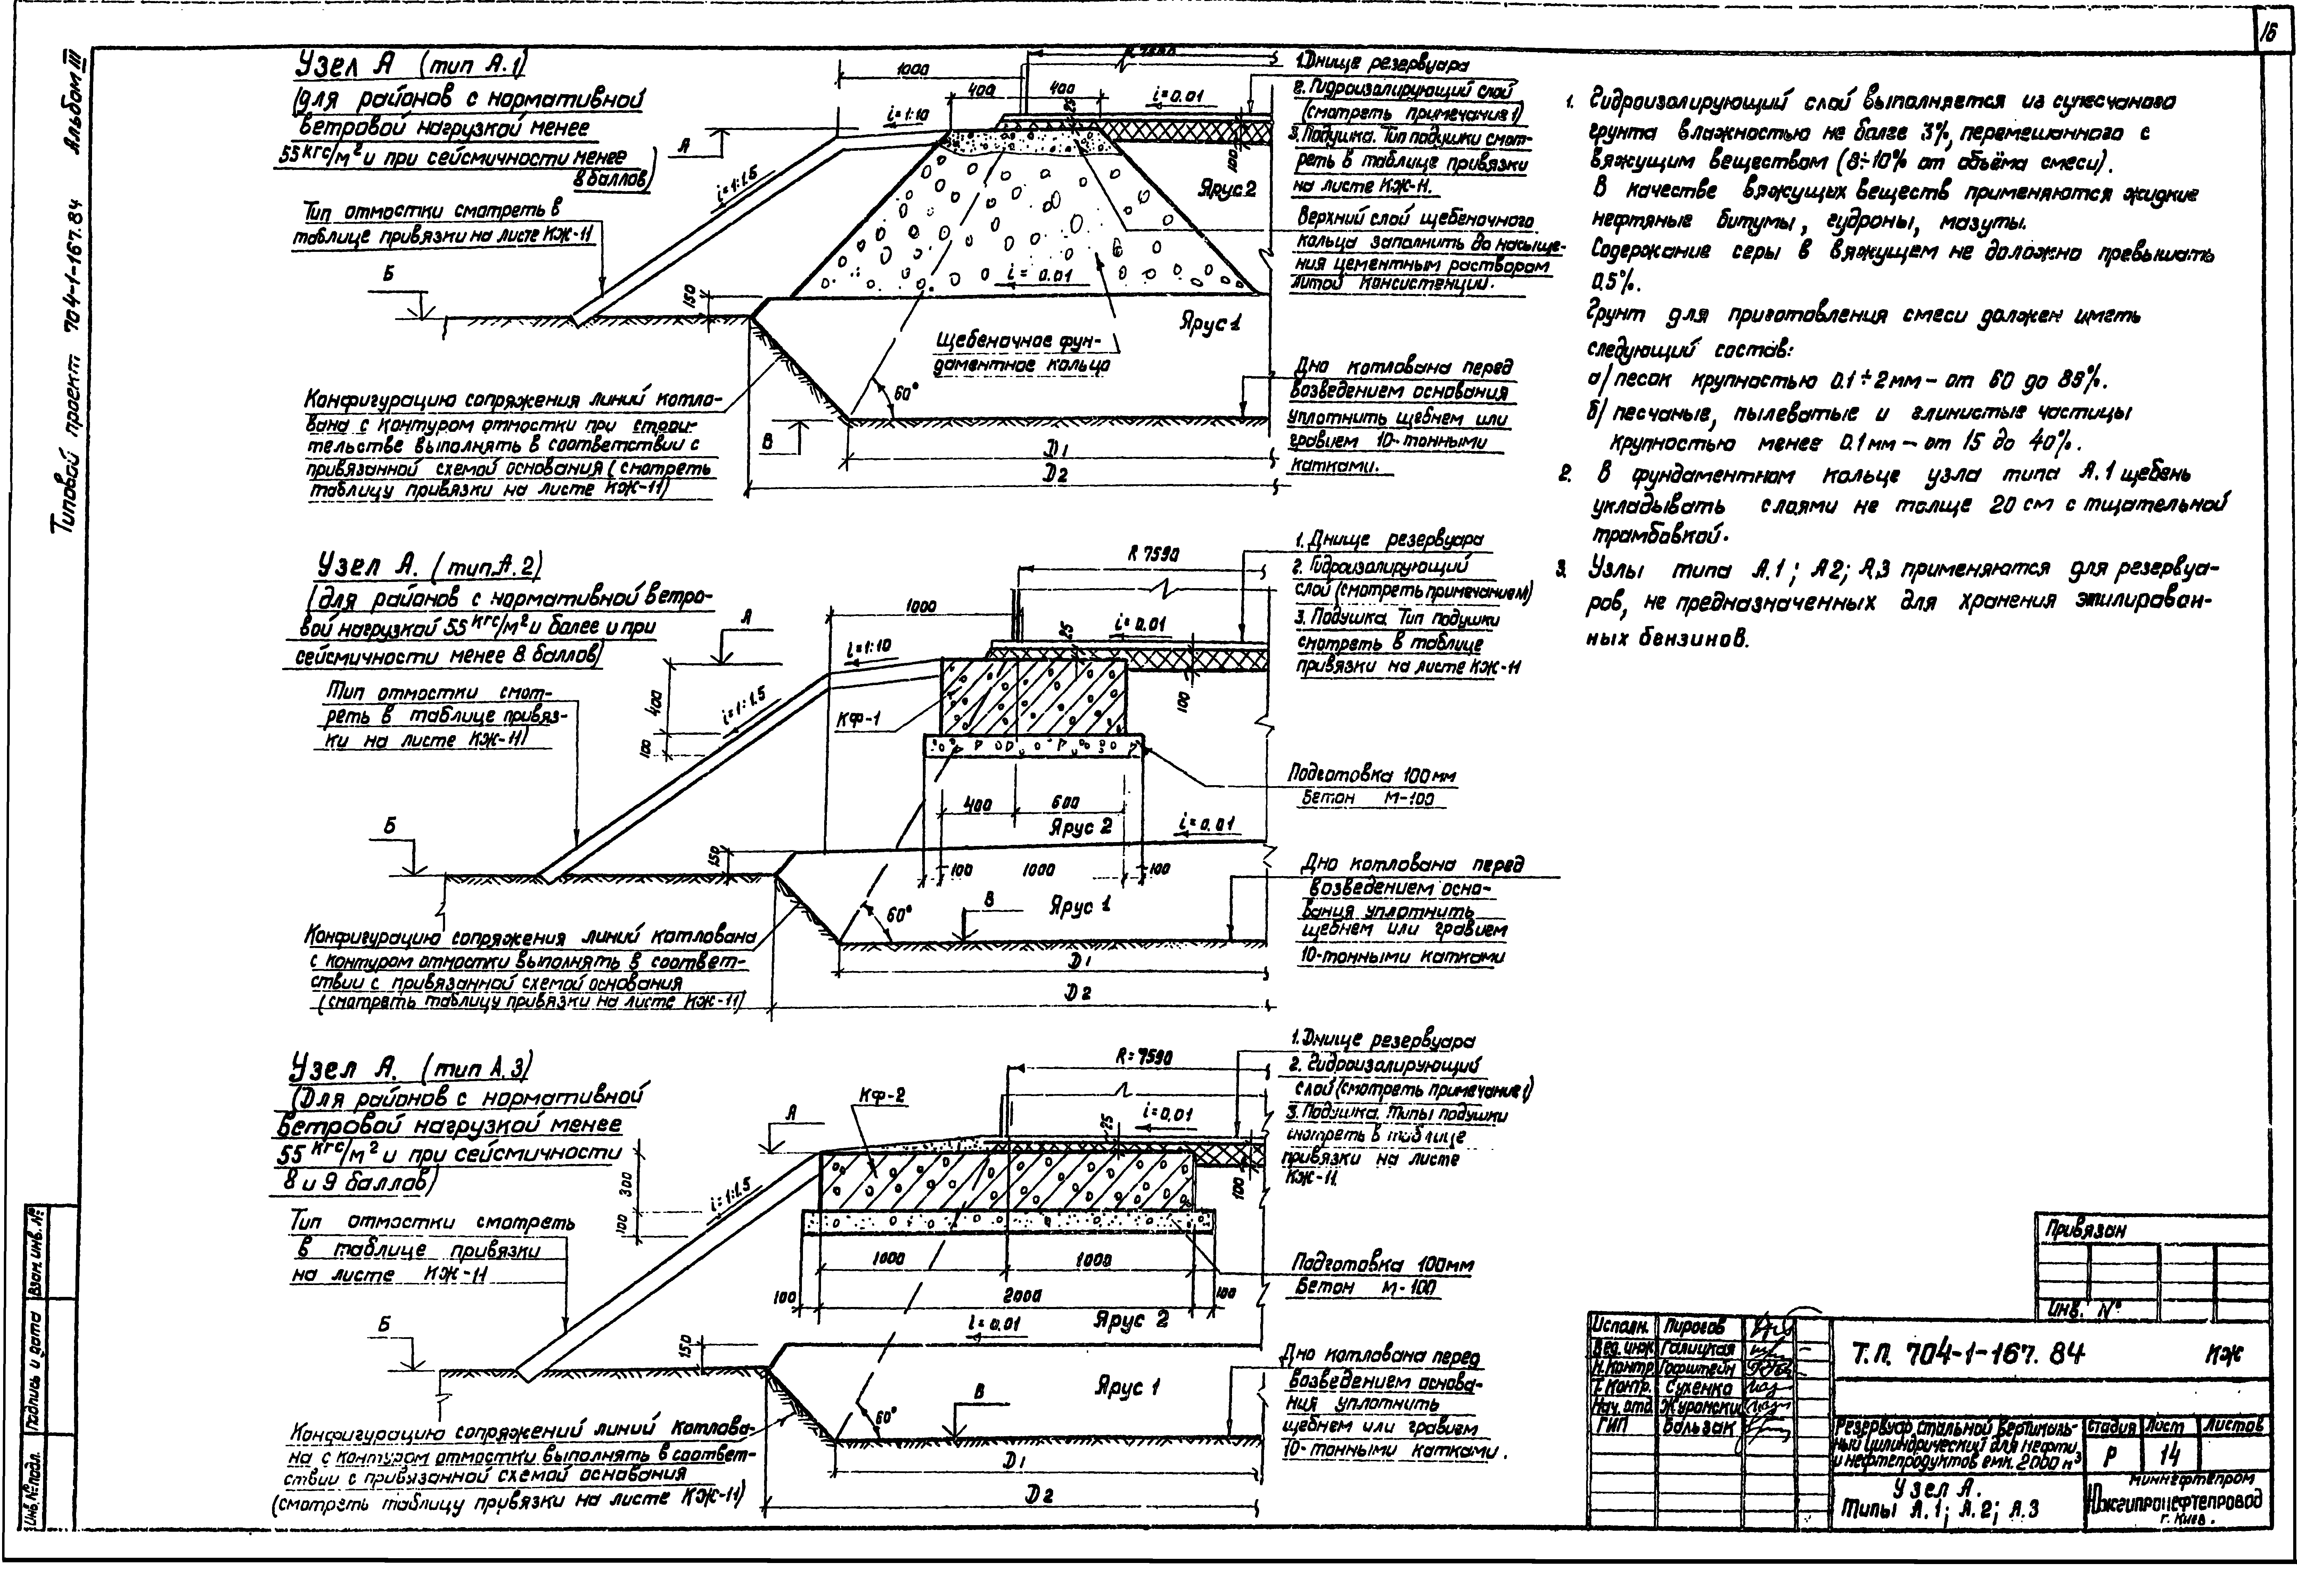 16
Типовой проект 704-1-167.84 Альбом III
Узел А (тип А.1)
(для районов с нормативной
ветровой нагрузкой менее
55 кгс/м² и при сейсмичности менее
8 баллов)
Тип отмостки смотреть в
таблице привязки на листе КЖ-11
Б
А
В
1000
R 7590
400
400
25
i=0.01
i=1:10
i=1:1.5
100
150
i=0.01
60°
Ярус 2
Ярус 1
Щебеночное фун-
даментное кольцо
D1
D2
Конфигурацию сопряжения линий котло-
вана с контуром отмостки при строи-
тельстве выполнять в соответствии с
привязанной схемой основания (смотреть
таблицу привязки на листе КЖ-11)
1. Днище резервуара
2. Гидроизолирующий слой
(смотреть примечания 1)
3. Подушка. Тип подушки смот-
реть в таблице привязки
на листе КЖ-11.
Верхний слой щебеночного
кольца заполнить до насыще-
ния цементным раствором
литой консистенции.
Дно котлована перед
возведением основания
уплотнить щебнем или
гравием 10-тонными
катками.
Узел А. (тип А.2)
(для районов с нормативной ветро-
вой нагрузкой 55 кгс/м² и более и при
сейсмичности менее 8 баллов)
Тип отмостки смот-
реть в таблице привяз-
ки на листе КЖ-11)
Б
А
В
R 7590
1000
25
i=0.01
i=1:10
i=1:1.5
400
100
100
150
КФ-1
400
600
Ярус 2
i=0.01
100
1000
100
60°
Ярус 1
D1
D2
Конфигурацию сопряжения линий котлована
с контуром отмостки выполнять в соответ-
ствии с привязанной схемой основания
(смотреть таблицу привязки на листе КЖ-11)
1. Днище резервуара
2. Гидроизолирующий
слой (смотреть примечанием)
3. Подушка. Тип подушки
смотреть в таблице
привязки на листе КЖ-11
Подготовка 100мм
Бетон М-100
Дно котлована перед
возведением осно-
вания уплотнить
щебнем или гравием
10-тонными катками
Узел А. (тип А.3)
(Для районов с нормативной
ветровой нагрузкой менее
55 кгс/м² и при сейсмичности
8 и 9 баллов)
Тип отмостки смотреть
в таблице привязки
на листе КЖ-11
Б
А
В
КФ-2
R=7590
25
i=0,01
i=1:1.5
300
100
100
150
1000
1000
100
2000
100
Ярус 2
i=0.01
Ярус 1
60°
D1
D2
Конфигурацию сопряжений линий котлова-
на с контуром отмостки выполнять в соответ-
ствии с привязанной схемой основания
(смотреть таблицу привязки на листе КЖ-11)
1. Днище резервуара
2. Гидроизолирующий
слой (смотреть примечание 1)
3. Подушка. Типы подушки
смотреть в таблице
привязки на листе
КЖ-11.
Подготовка 100мм
Бетон М-100
Дно котлована перед
возведением основа-
ния уплотнить
щебнем или гравием
10-тонными катками.
1. Гидроизолирующий слой выполняется из супесчаного
грунта влажностью не более 3%, перемешанного с
вяжущим веществом (8÷10% от объёма смеси).
В качестве вяжущих веществ применяются жидкие
нефтяные битумы, гудроны, мазуты.
Содержание серы в вяжущем не должно превышать
0.5%.
Грунт для приготовления смеси должен иметь
следующий состав:
а/ песок крупностью 0.1÷2мм - от 60 до 85%.
б/ песчаные, пылеватые и глинистые частицы
крупностью менее 0.1мм - от 15 до 40%.
2. В фундаментном кольце узла типа А.1 щебень
укладывать слоями не толще 20 см с тщательной
трамбовкой.
3. Узлы типа А.1; А2; А,3 применяются для резервуа-
ров, не предназначенных для хранения этилирован-
ных бензинов.
Привязан
Инв. №
Исполн. Пирогов
Вед. инж Галицкая
Н.контр. Горштейн
Т. контр. Сухенко
Нач. отд.
ГИП Бользак
Т.П. 704-1-167.84 КЖ
Резервуар стальной вертикаль-
ный цилиндрический для нефти
и нефтепродуктов емк. 2000 м³
Стадия Лист Листов
Р 14
Узел А.
Типы А.1; А.2; А.3
Миннефтепром
Южгипронефтепровод
г. Киев.
Инв. № подл. Подпись и дата Взам. инв. №